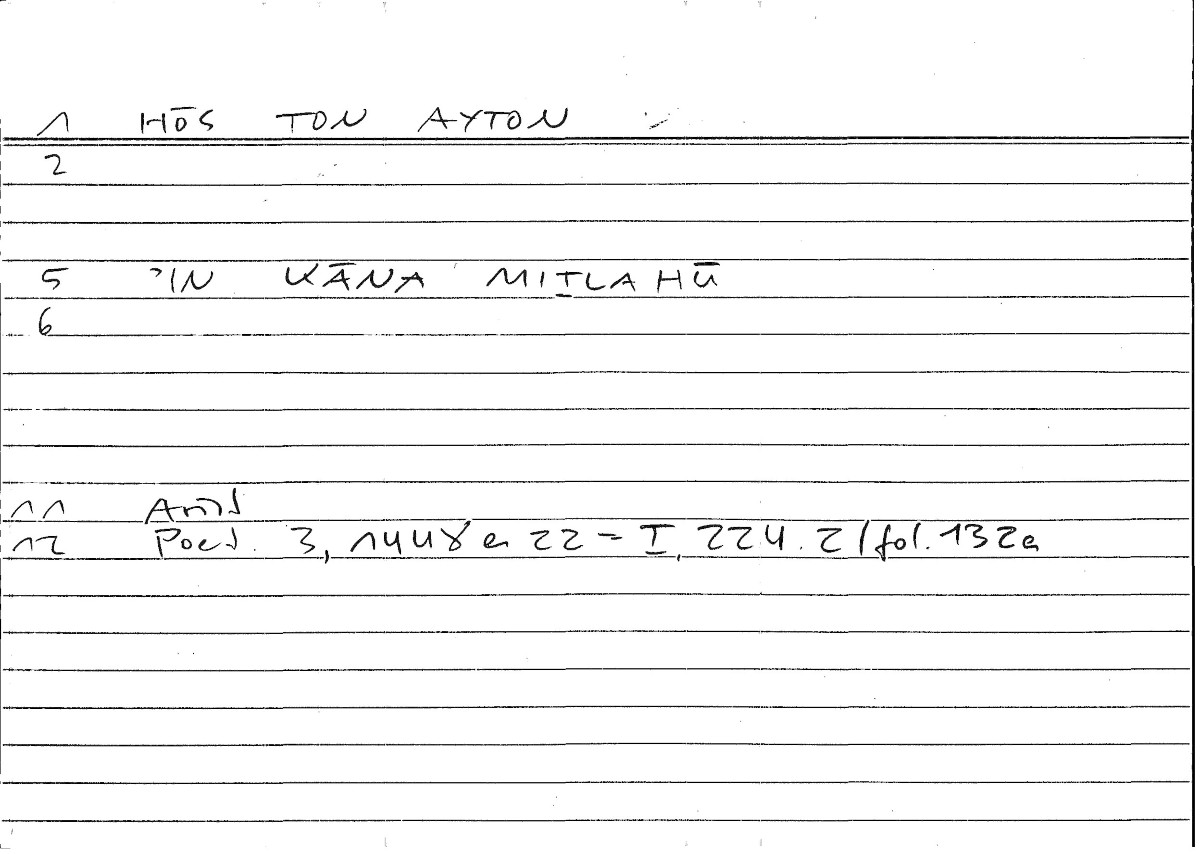 1 HŌS TON AYTON
2
5 ʾIN KĀNA MIṮLAHŪ
6
11 Arist
12 Poet. 3, 1448 a 22 = I, 224. 2 / fol. 132a